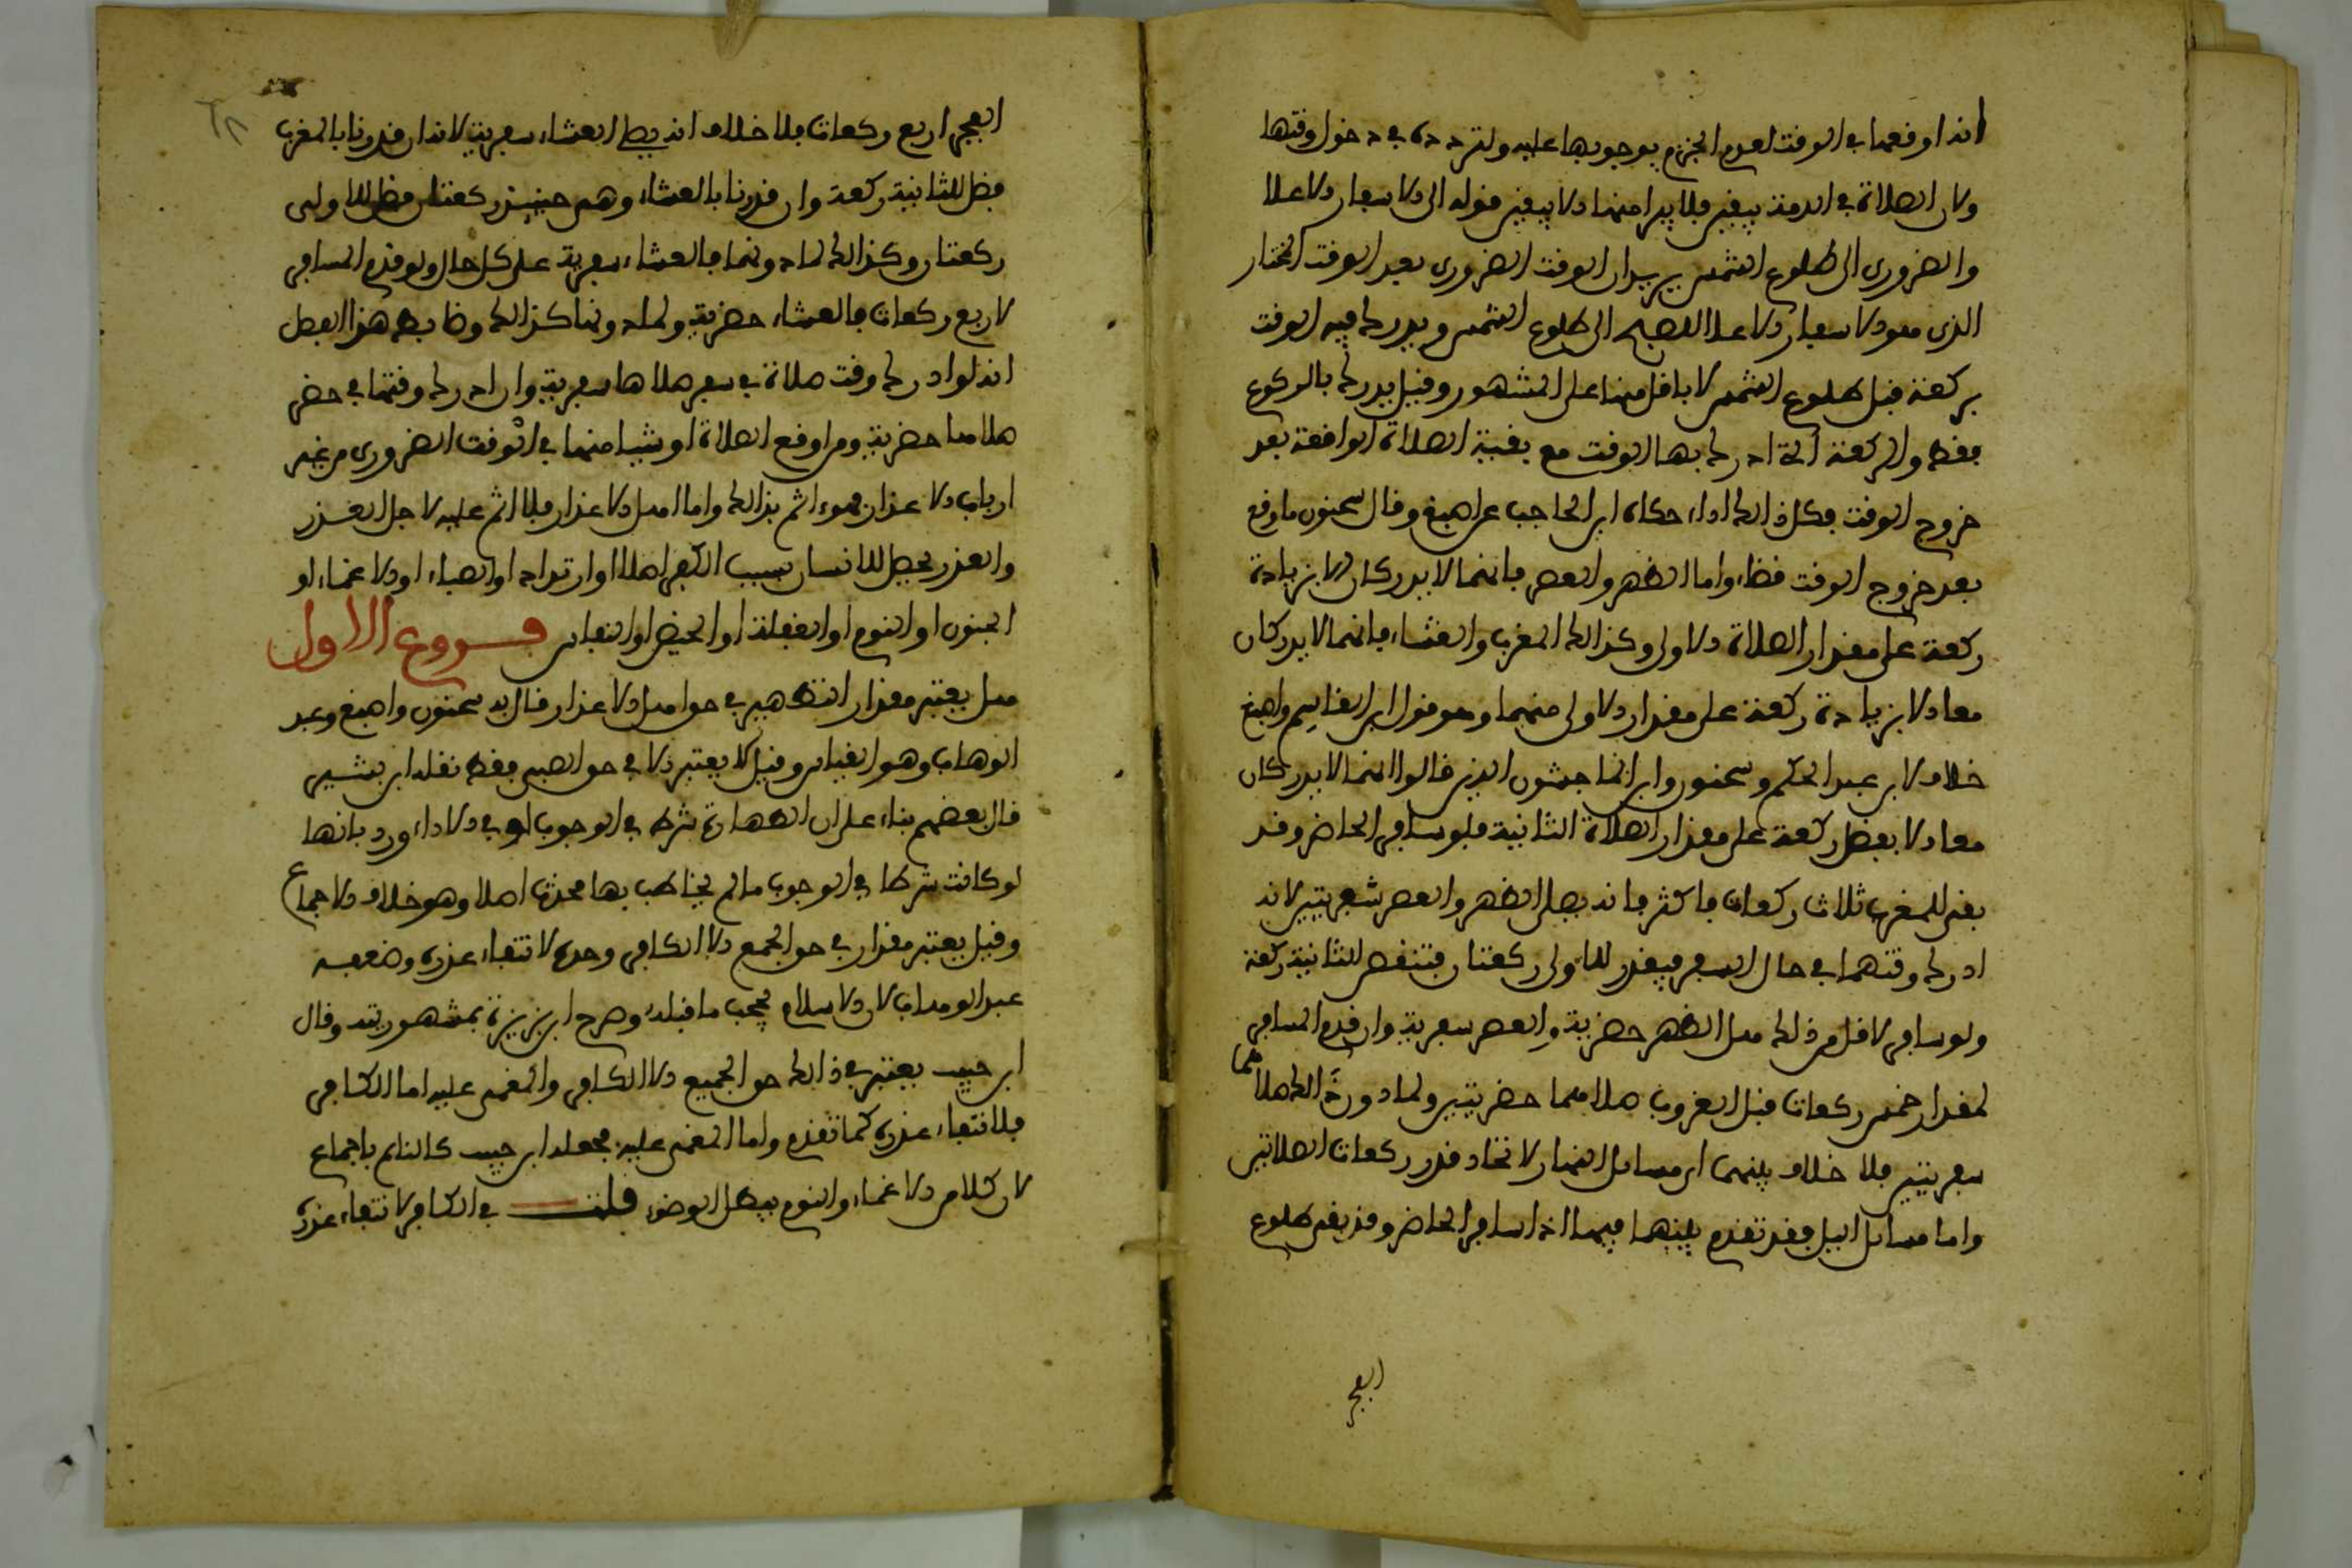 انه اوقعها في الوقت لعدم الجزم بوجوبها عليه ولتردده في دخول وقتها
ولان الصلاة في الذمة بيقين فلا يبرا منها الا بيقين قوله الى الاسفار الاعلا
والضروري الى طلوع الشمس يريد ان الوقت الضروري بعد الوقت المختار
الذي هو الاسفار الاعلا للصبح الى طلوع الشمس ويدرك فيه الوقت
بركعة قبل طلوع الشمس لا باقل منها على المشهور وقيل يدرك بالركوع
فقط والركعة التي ادرك بها الوقت مع بقية الصلاة الواقعة بعد
خروج الوقت فكل ذالك اداء حكاه ابن الحاجب عن اصبغ وقال سحنون ما وقع
بعد خروج الوقت قضاء واما الظهر والعصر فانهما لا يدركان الا بزيادة
ركعة على مقدار الصلاة الاولى وكذالك المغرب والعشاء فانهما لا يدركان
معا الا بزيادة ركعة على مقدار الاولى منهما وهو قول ابن القاسم واصبغ
خلاف لابن عبد الحكم وسحنون وابن الماجشون الذين قالوا انهما لا يدركان
معا الا بفضل ركعة على مقدار الصلاة الثانية فلو سافر الحاضر وقد
بقي للمغرب ثلاث ركعات فاكثر فانه يصلي الظهر والعصر سفريتين لانه
ادرك وقتهما في حال السفر فيقدر للاولى ركعتان فتفضل للثانية ركعة
ولو سافر لاقل من ذلك صلى الظهر حضرية والعصر سفرية وان قدم المسافر
لمقدار خمس ركعات قبل الغروب صلاهما حضريتين ولما دون ذالك صلاهما
سفريتين فلا خلاف بينهما في مسائل النهار لاتحاد قدر ركعات الصلاتين
واما مسائل الليل فقد تقدم بينهما فيما اذا سافر الحاضر وقد بقي طلوع
الفجر
الفجر اربع ركعات فلا خلاف انه يصلي العشاء سفرية لانه ان قدرنا بالمغرب
فضل للثانية ركعة وان قدرنا بالعشاء وهي حينئذ ركعتان فضل للاولى
ركعتان وكذالك لما دونها فالعشاء سفرية على كل حال ولو قدم المسافر
لاربع ركعات فالعشاء حضرية ولما دونها كذالك وضابط هذا الفصل
انه لو ادرك وقت صلاة في سفر صلاها سفرية وان ادرك وقتها في حضر
صلاها حضرية ومن اوقع الصلاة او شيئا منها في الوقت الضروري من غير
ارباب الاعذار فهو ءاثم بذالك واما اهل الاعذار فلا اثم عليه لاجل العذر
والعذر يحصل للانسان بسبب الكفر اصلا او ارتداد او الصباء او الاغماء او
الجنون او النوم او الغفلة او الحيض او النفاس فروع الاول
هل يعتبر مقدار التطهير في حق اهل الاعذار قال به سحنون واصبغ وعبد
الوهاب وهو القياس وقيل لا يعتبر الا في حق الصبي فقط نقله ابن بشير
قال بعضهم بناء على ان الطهارة شرط في الوجوب او في الاداء ورد بانها
لو كانت شرطا في الوجوب ما لم يخاطب بها محدث اصلا وهو خلاف الاجماع
وقيل يعتبر مقدار في حق الجمع الا الكافر وحده لانتفاء عذره وضعفه
عبد الوهاب لان الاسلام يجب ما قبله وصرح ابن بزيزة بمشهوريته وقال
ابن حبيب يعتبر في ذالك حق الجميع الا الكافر والمغمى عليه اما الكافر
فلانتفاء عذره كما تقدم واما المغمى عليه فجعله ابن حبيب كالنايم باجماع
لان كلا من الاغماء والنوم يبطل الوضوء قلت في الكافر لانتفاء عذره